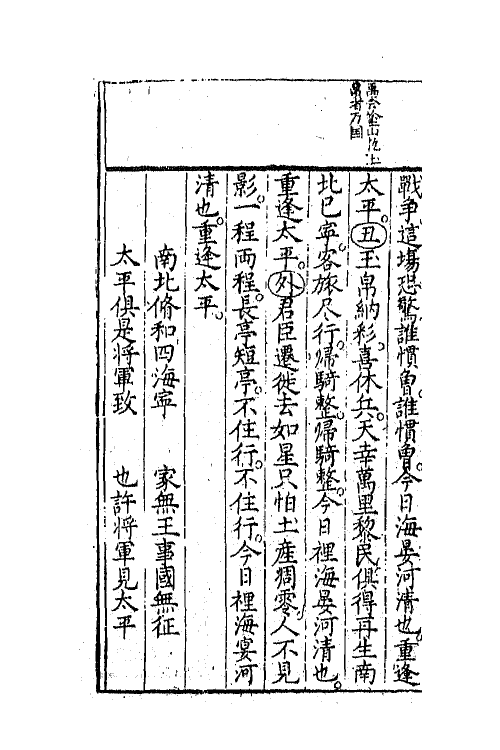 萬𫝀金山𠃔上
帛省万国
戰争這場恐驚誰慣曽誰慣曽今日海晏河清也重逢
太平丑王帛納彩喜休兵天幸萬里黎民俱得再生南
北已寧客旅尽行歸騎整歸騎整今日裡海晏河清也
重逢太平外君臣遷徙去如星只怕土産凋零人不見
影一程両程長亭短亭不住行不住行今日裡海宴河
清也重逢太平
南北脩和四海寧　家無王事國無征
太平俱是将軍致　也許将軍見太平